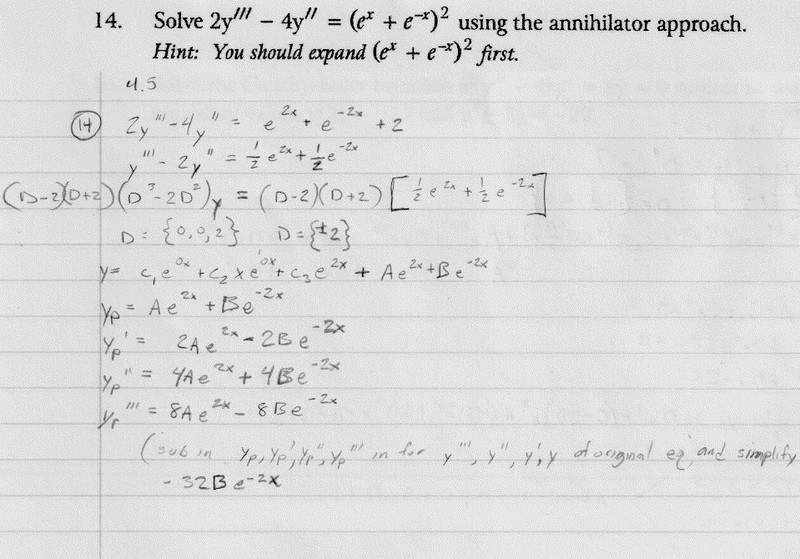 14. Solve 2y''' − 4y'' = (eˣ + e⁻ˣ)² using the annihilator approach.
Hint: You should expand (eˣ + e⁻ˣ)² first.
4.5
(14) 2y''' - 4y'' = e^{2x} + e^{-2x} + 2
y''' - 2y'' = ½ e^{2x} + ½ e^{-2x}
(D-2)(D+2)(D³-2D²)y = (D-2)(D+2) [½ e^{2x} + ½ e^{-2x}]
D = {0,0,2} D = {±2}
y = c₁e^{0x} + c₂xe^{0x} + c₃e^{2x} + Ae^{2x} + Be^{-2x}
yp = Ae^{2x} + Be^{-2x}
yp' = 2Ae^{2x} - 2Be^{-2x}
yp'' = 4Ae^{2x} + 4Be^{-2x}
yp''' = 8Ae^{2x} - 8Be^{-2x}
(sub in yp, yp', yp'', yp''' in for y''', y'', y', y of original eq and simplify
- 32B e^{-2x}